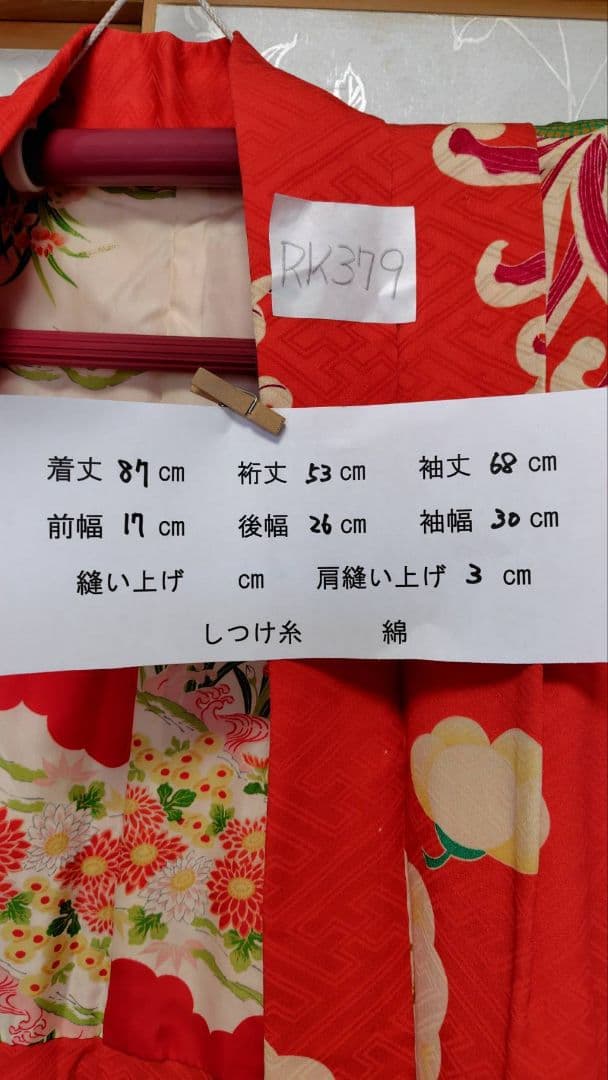 RK379
着丈 87 cm 裄丈 53 cm 袖丈 68 cm
前幅 17 cm 後幅 26 cm 袖幅 30 cm
縫い上げ cm 肩縫い上げ 3 cm
しつけ糸 綿